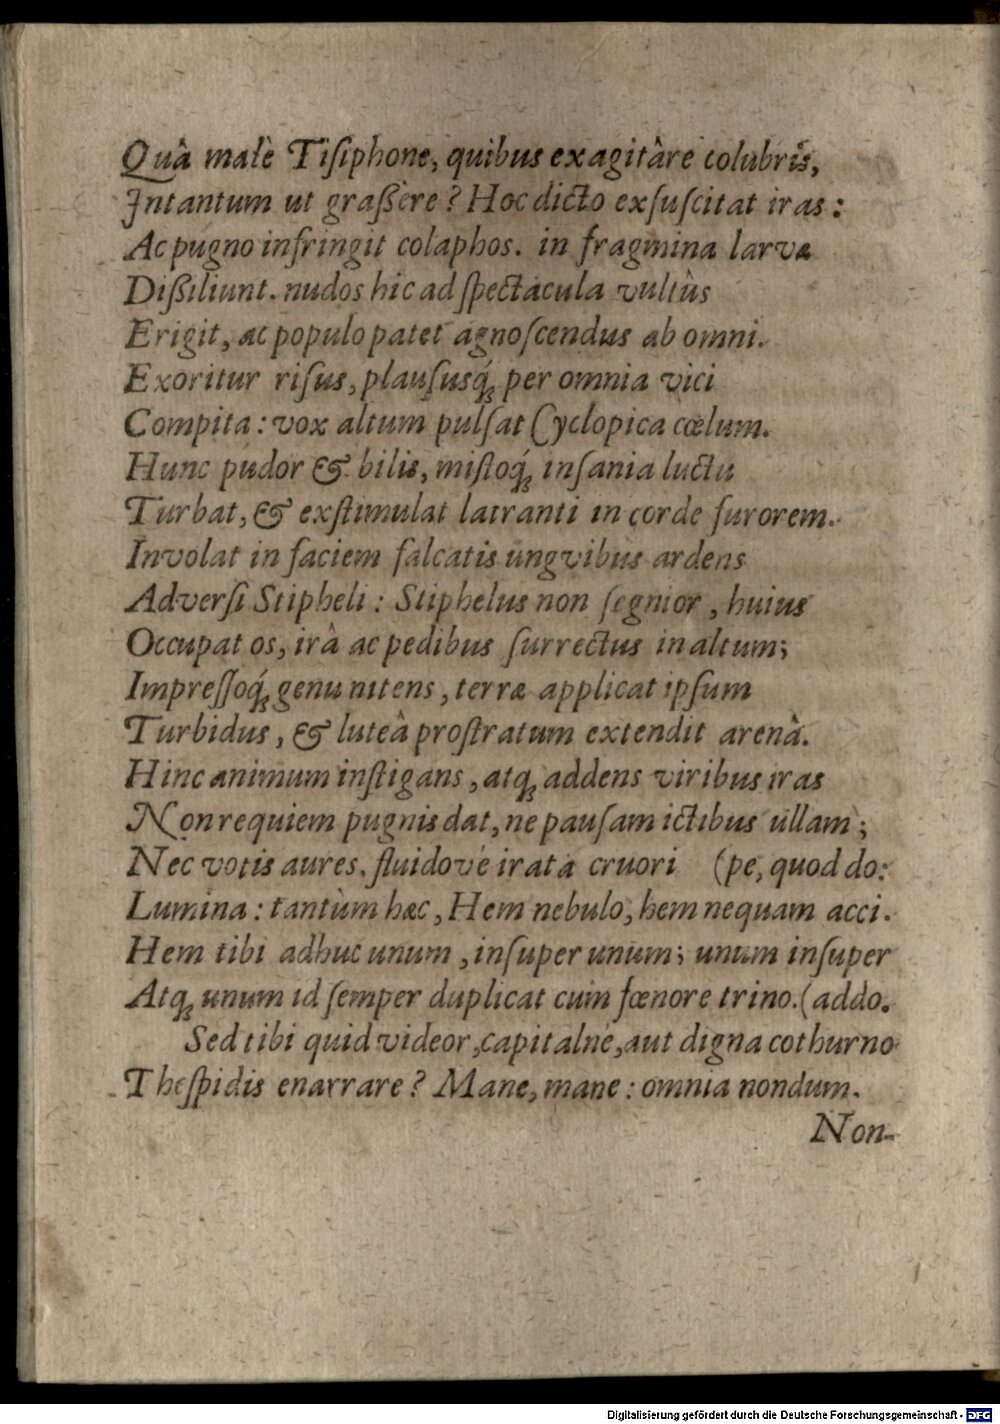 Quâ malè Tiſiphone, quibus exagitâre colubrîs,
Intantum ut graßêre? Hoc dicto exſuſcitat iras:
Ac pugno infringit colaphos. in fragmina larvæ
Dißiliunt. nudos hic ad ſpectacula vultûs
Erigit, ac populo patet agnoſcendus ab omni.
Exoritur riſus, plauſusq́; per omnia vici
Compita: vox altum pulſat Cyclopica cœlum.
Hunc pudor & bilis, miſtoq́; inſania luctu
Turbat, & exſtimulat latranti in corde furorem.
Involat in faciem falcatis ungvibus ardens
Adverſi Stipheli: Stiphelus non ſegnior, huius
Occupat os, irâ ac pedibus ſurrectus in altum;
Impreſſoq́; genu nitens, terræ applicat ipſum
Turbidus, & luteâ proſtratum extendit arenâ.
Hinc animum inſtigans, atq; addens viribus iras
Non requiem pugnis dat, ne pauſam ictibus ullam;
Nec votis aures, fluidove irata cruori (pe, quod do:
Lumina: tantùm hæc, Hem nebulo, hem nequam acci.
Hem tibi adhuc unum, inſuper unum; unum inſuper
Atq; unum id ſemper duplicat cum fœnore trino. (addo.
Sed tibi quid videor, capitalne, aut digna cothurno
Theſpidis enarrare? Mane, mane: omnia nondum.
Non-
Digitalisierung gefördert durch die Deutsche Forschungsgemeinschaft - DFG